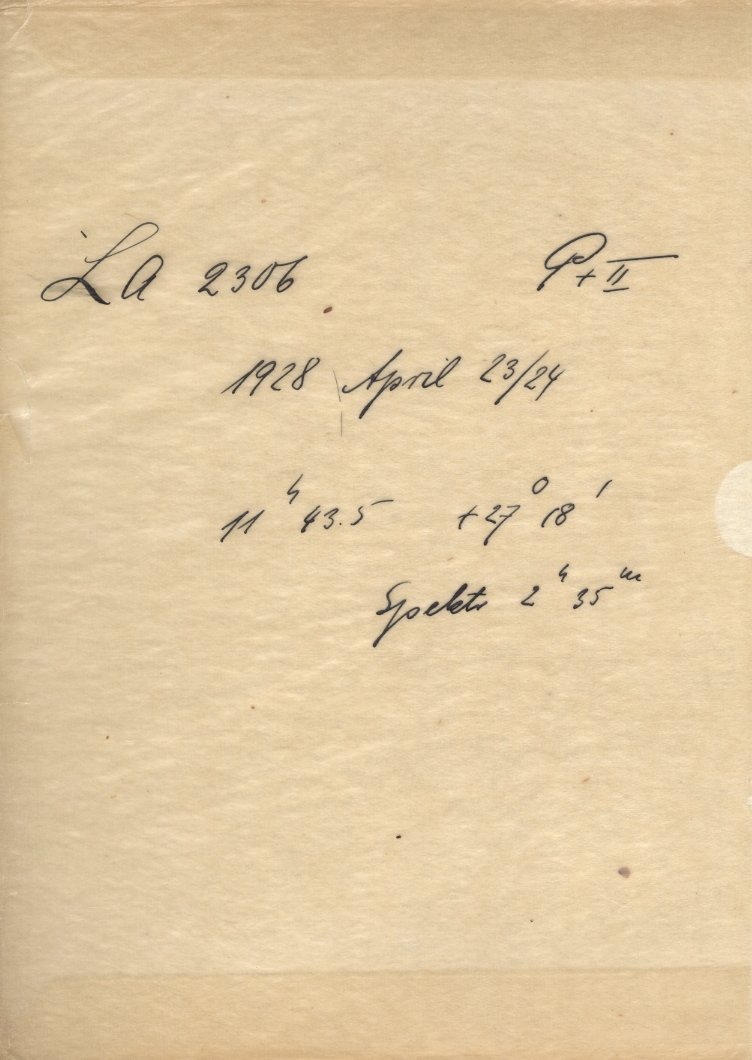 LA 2306 P+II
1928 April 23/24
11ʰ 43.5 +27° 18'
Spektr 2ʰ 35ᵐ